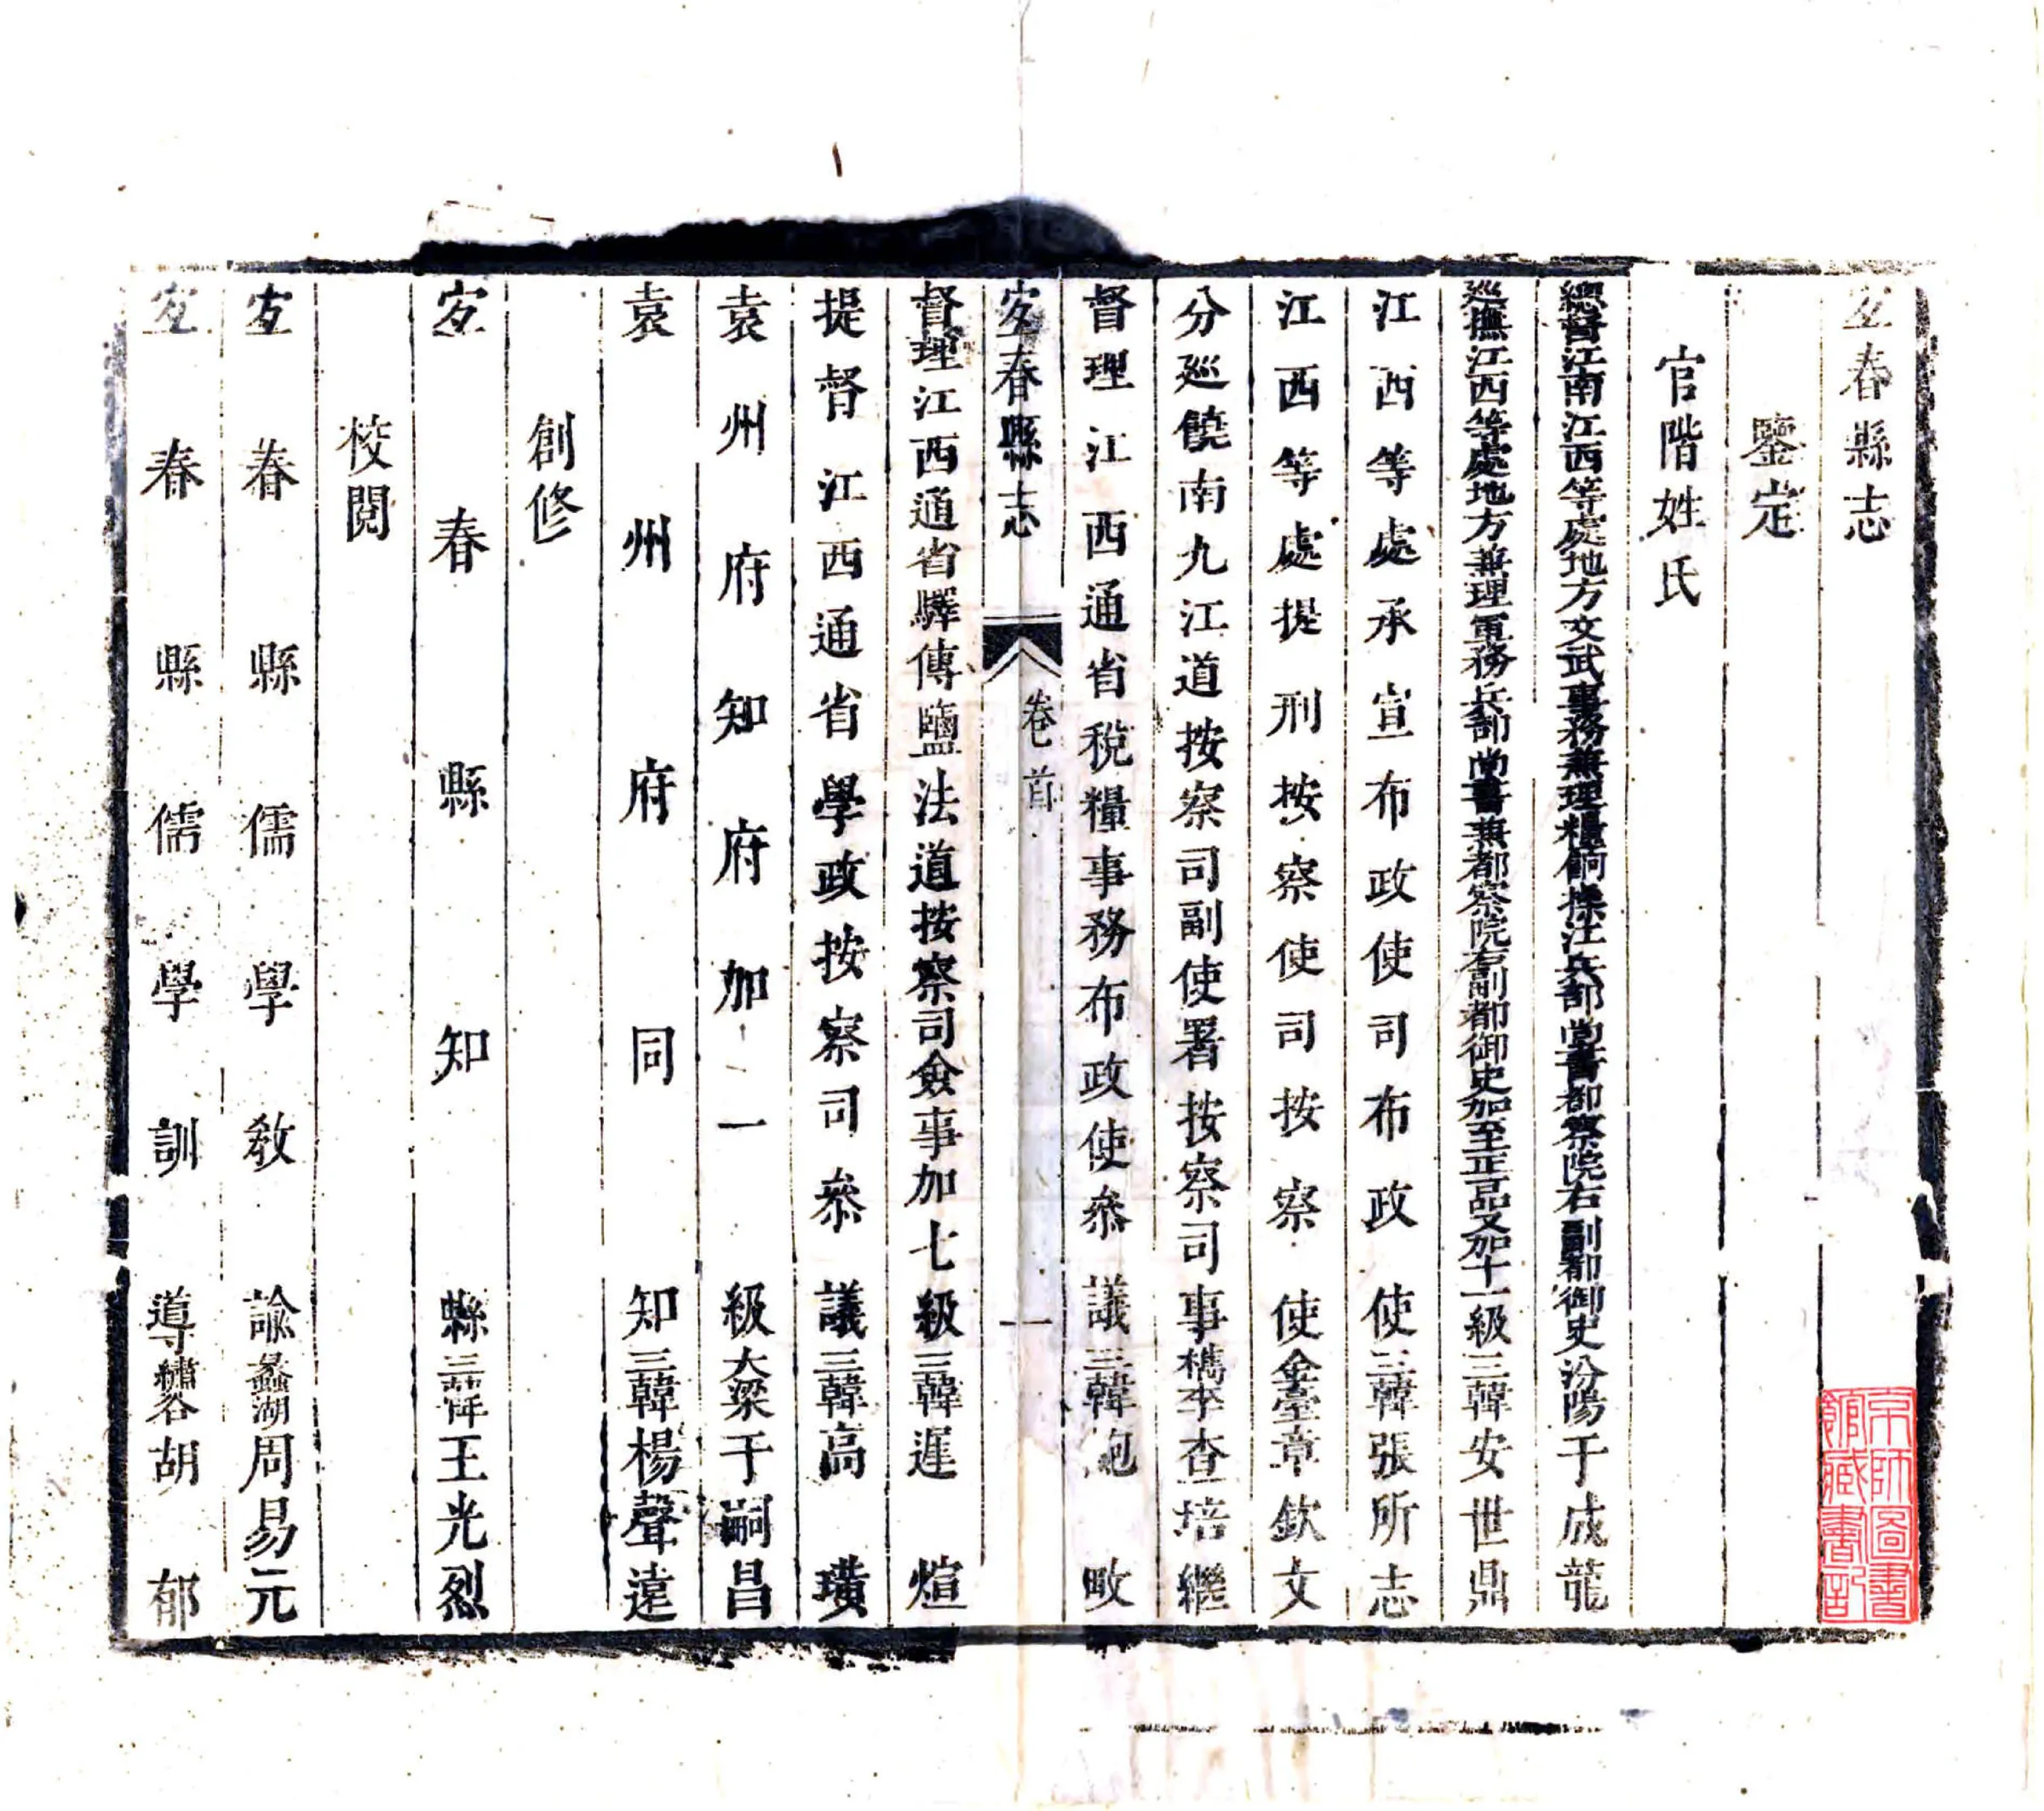 宐春縣志
鑒定
官階姓氏
總督江南江西等處地方文武事務兼理糧餉操江兵部尚書都察院右副都御史汾陽于成龍
巡撫江西等處地方兼理軍務兵部尚書兼都察院右副都御史加至正一品又加十一級三韓安世鼎
江西等處承宣布政使司布政使三韓張所志
江西等處提刑按察使司按察使金臺章欽文
分廵饒南九江道按察司副使署按察司事檇李查培繼
督理江西通省稅糧事務布政使叅議三韓鮑畋
宐春縣志
卷首
一
督理江西通省驛傳鹽法道按察司僉事加七級三韓遲煊
提督江西通省學政按察司叅議三韓高璜
袁州府知府加一級大梁于嗣昌
袁州府同知三韓楊聲遠
創修
宐春縣知縣三韓王光烈
校閱
宐春縣儒學教諭蠡湖周易元
宐春縣儒學訓導繡谷胡郁
京師圖書館藏書記